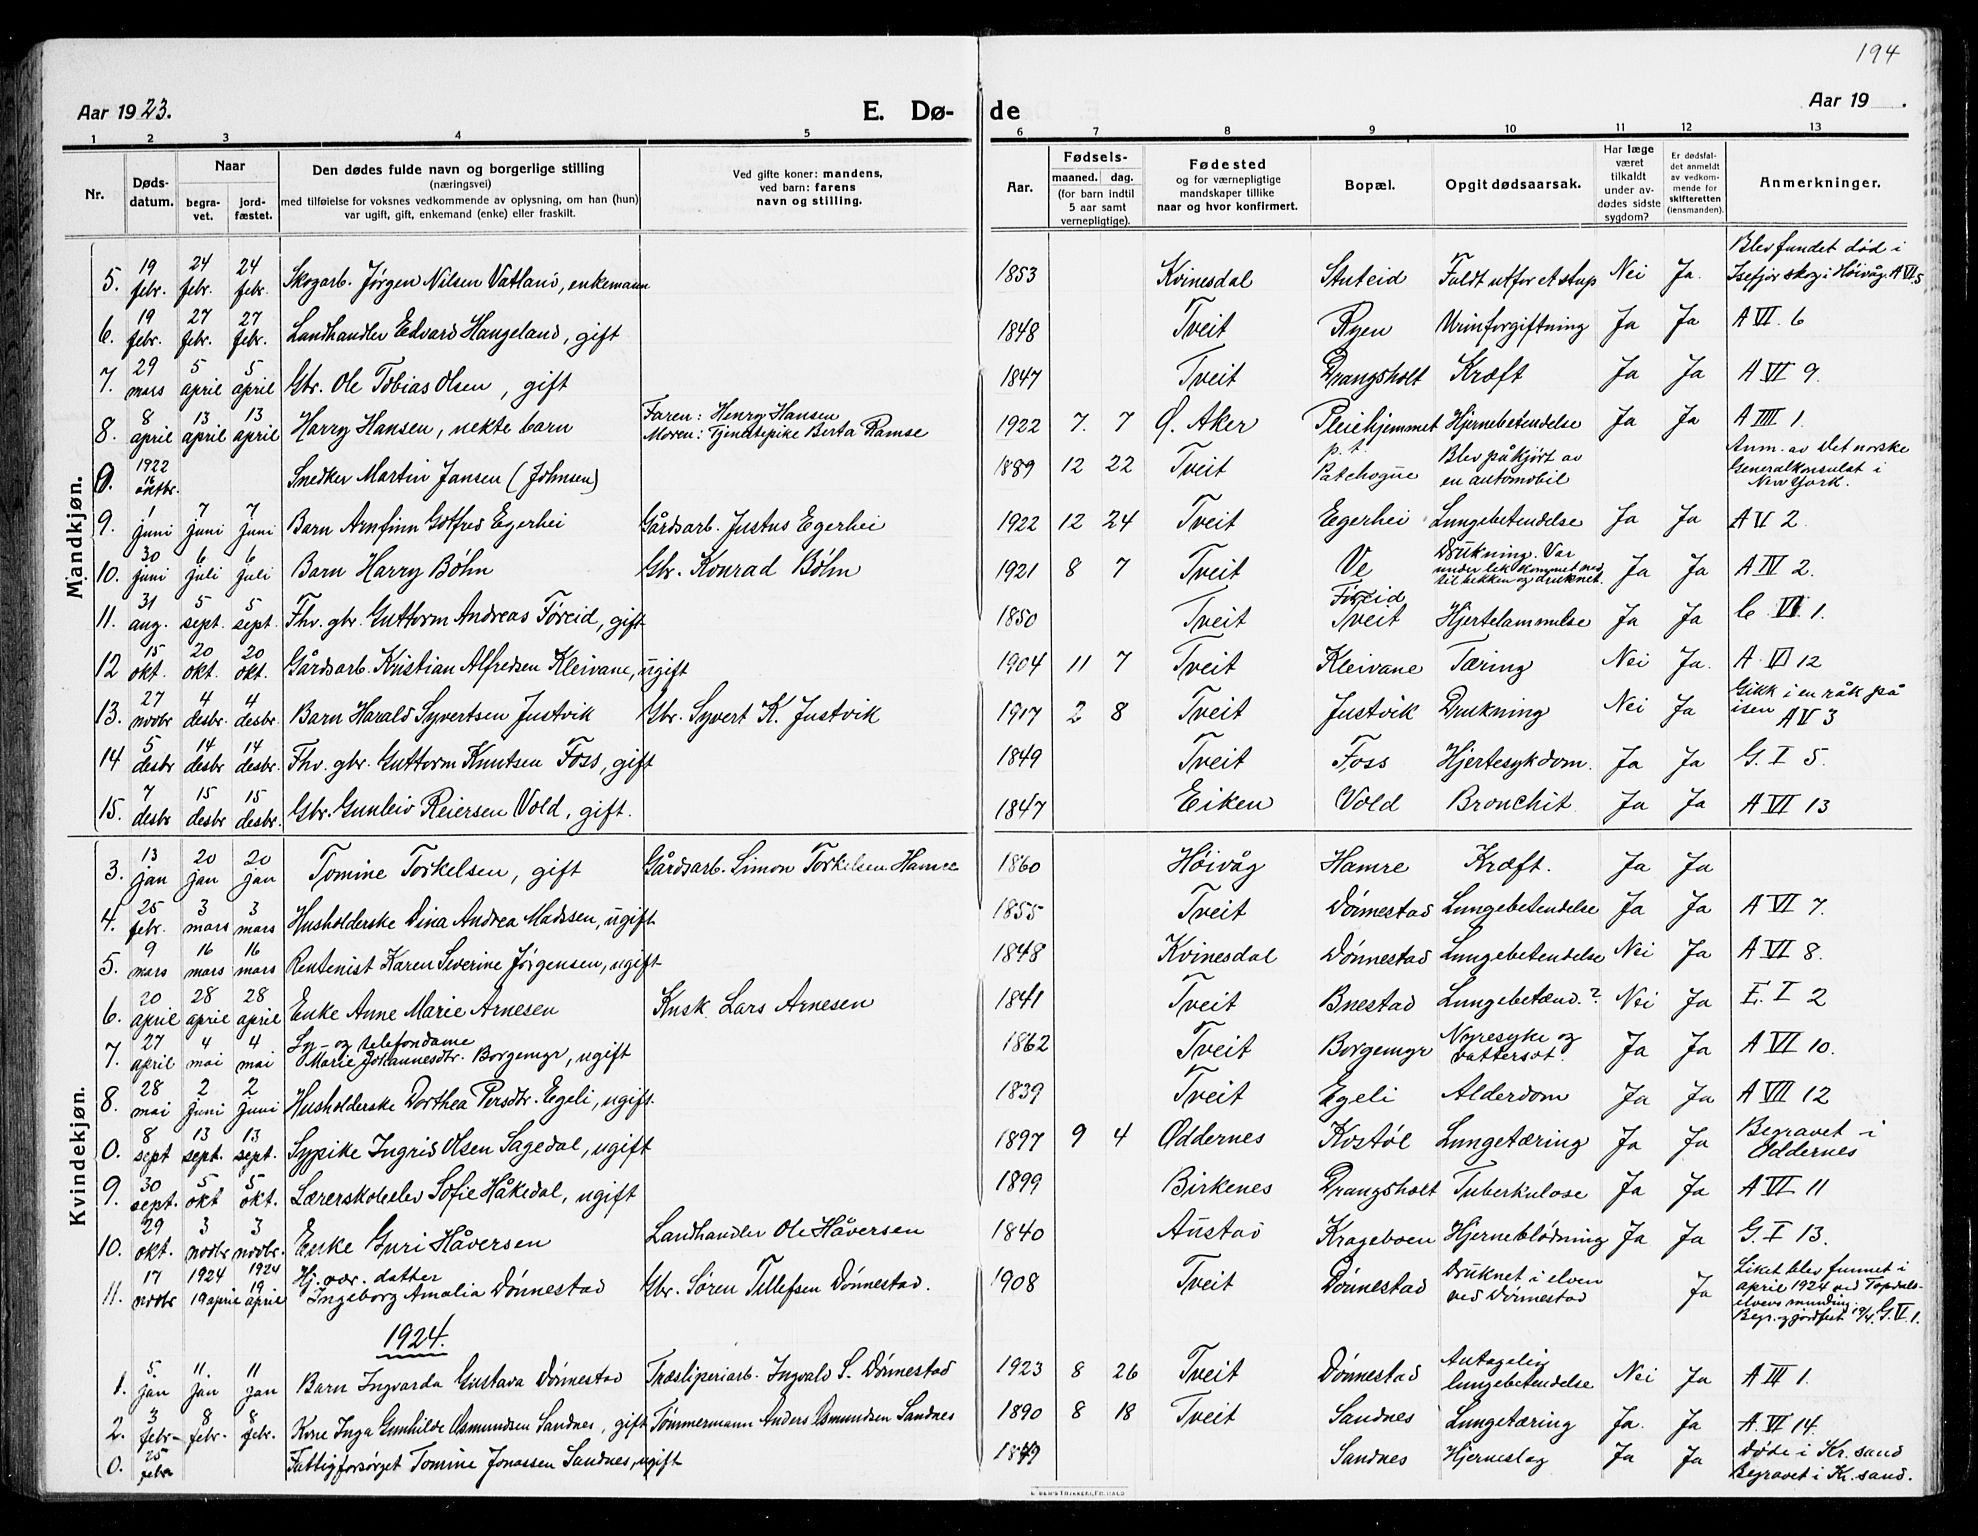 194
Aar 1923. E. Dø- de Aar 19 .
1 2 3 4 5 6 7 8 9 10 11 12 13
Nr. Døds-datum. Naar begra-vet. jord-fæstet. Den dødes fulde navn og borgerlige stilling (næringsvei) med tilføielse for voksnes vedkommende av oplysning, om han (hun) var ugift, gift, enkemand (enke) eller fraskilt. Ved gifte koner: mandens, ved barn: farens navn og stilling. Aar. Fødsels- maaned. dag. (for barn indtil 5 aar samt vernepligtige). Fødested og for værnepligtige mandskaper tillike naar og hvor konfirmert. Bopæl. Opgit dødsaarsak. Har læge været tilkaldt under av-dødes sidste sygdom? Er dødsfal-det anmeldt av vedkom-mende for skifteretten (lensmanden). Anmerkninger.
Mandkjøn.
5. 19 febr. 24 febr. 24 febr. Skogarb. Jørgen Nilsen Vatland, enkemann 1853 Kvinesdal Stuteid Faldt utfor et stup Nei Ja. Blev fundet død i Isefjær skog i Høivåg. A VI 5
6. 19 febr. 27 febr. 27 febr. Landhandler Edvard Haugeland, gift 1848 Tveit Ryen Urinforgiftning Ja Ja A VI. 6
7. 29 mars 5 april 5 april Gbr. Ole Tobias Olsen, gift 1847 Tveit Drangsholt Kræft Ja Ja A VI 9.
8. 8 april 13 april 13 april Harry Hansen, uekte barn Faren: Henry Hansen Moren: Tjenestepike Berta Ramse 1922 7. 7 Ø. Aker Pleiehjemmet Hjernebetendelse Ja Ja A III 1.
0. 1922 16 oktbr. Snedker Martin Jansen (Johnsen) 1889 12 22 Tveit p.t. Patchogue Blev påkjørt av en automobil Anm. av Det norske Generalkonsulat i New York.
9. 1 juni 7 juni 7 juni Barn Arnfinn Gotfred Egerhei Gårdsarb. Justus Egerhei 1922 12 24 Tveit Egerhei Lungebetendelse Ja Ja A V 2.
10. 30 juni 6 juli 6 juli Barn Harry Bøhn Gbr. Konrad Bøhn 1921 8 7 Tveit Ve Drukning. Var under lek kommet ned til bekken og druknet. Ja Ja A IV 2.
11. 31 aug. 5 sept. 5 sept. Fhv. gbr. Guttorm Andreas Føreid, gift 1850 Tveit Føreid Tveit Hjertelammelse Ja Ja C. VI. 1.
12 15 okt. 20 okt. 20 okt. Gårdsarb. Kristian Alfredsen Kleivane, ugift 1904 11 7 Tveit Kleivane Tæring Nei Ja. A. VI 12
13. 27 novbr 4 desbr. 4 desbr. Barn Harald Syvertsen Justvik Gbr. Syvert K. Justvik 1917 2 8 Tveit Justvik Drukning Nei Ja Gikk i en råk på isen A V 3
14 5 desbr 14 desbr 14 desbr. Fhv. gbr. Guttorm Knutsen Foss, gift 1849 Tveit Foss Hjertesykdom. Ja Ja G. I 5.
15. 7 desbr 15 desbr 15 desbr. Gbr. Gunleiv Reiersen Vold, gift. 1847 Eiken Vold Bronchit. Ja Ja A VI 13
Kvindekjøn.
3. 13 jan 20 jan 20 jan Tomine Torkelsen, gift Gårdsarb. Simon Torkelsen Hamre 1860 Høivåg Hamre Kræft. Ja Ja
4. 25 febr. 3 mars 3 mars Husholderske Dina Andrea Madssen, ugift 1855 Tveit Dønnestad Lungebetendelse Ja Ja A VI 7.
5. 9 mars 16 mars 16 mars Rentenist Karen Severine Jørgensen, ugift 1848 Kvinesdal Dønnestad Lungebetendelse Nei Ja A VI 8.
6. 20 april 28 april 28 april Enke Anne Marie Arnesen Kusk. Lars Arnesen 1841 Tveit Bnestad Lungebetænd.? Nei Ja E. I 2
7. 27 april 4 mai 4 mai Sy- og telefondame Marie Johannesdtr. Borgemyr, ugift 1862 Tveit Borgemyr Nyresyke og vattersot. Ja Ja A VI 10.
8. 28 mai 2 juni 2 juni Husholderske Dorthea Persdtr. Egeli, ugift. 1839 Tveit Egeli Alderdom Ja Ja A VII 12
0. 8 sept 13 sept. 13 sept. Sypike Ingrid Olsen Sagedal, ugift 1897 9 4 Oddernes Kostøl Lungetæring Ja Ja Begravet i Oddernes
9. 30 sept. 5 okt 5 okt. Lærerskoleelev Sofie Håkedal, ugift 1899 Birkenes Drangsholt Tuberkulose Ja Ja A VI 11
10. 29 okt. 3 novbr 3 novbr. Enke Guri Håversen Landhandler Ole Håversen 1840 Austad Krageboen Hjerneblødning Ja Ja G. I 13.
11. 17 novbr 1924 19 april 1924 19 april Hj. vær. datter Ingeborg Amalia Dønnestad Gbr. Søren Tellefsen Dønnestad. 1908 Tveit Dønnestad Druknet i elven ved Dønnestad Ja Liket blev funnet i april 1924 ved Topdals-elvens munding. Begr. og jordfest 19/4. G. V. 1.
1924.
1. 5 jan 11. jan 11 jan Barn Ingvarda Gustava Dønnestad Træsliperiarb. Ingvald S. Dønnestad 1923 8 26 Tveit Dønnestad Antagelig lungebetendelse Nei Ja A III 1.
2. 3 febr. 8 febr. 8 febr. Kone Inga Gunhilde Osmundsen Sandnes, gift Tømmermann Anders Osmundsen Sandnes 1890 8 18 Tveit Sandnes Lungetæring Ja. Ja A. VI 14.
0. 25 febr Fattigforsørget Tomine Jonassen Sandnes, ugift 1849 Sandnes Hjerneslag Ja Ja Døde i Kr.sand Begravet i Kr.sand.